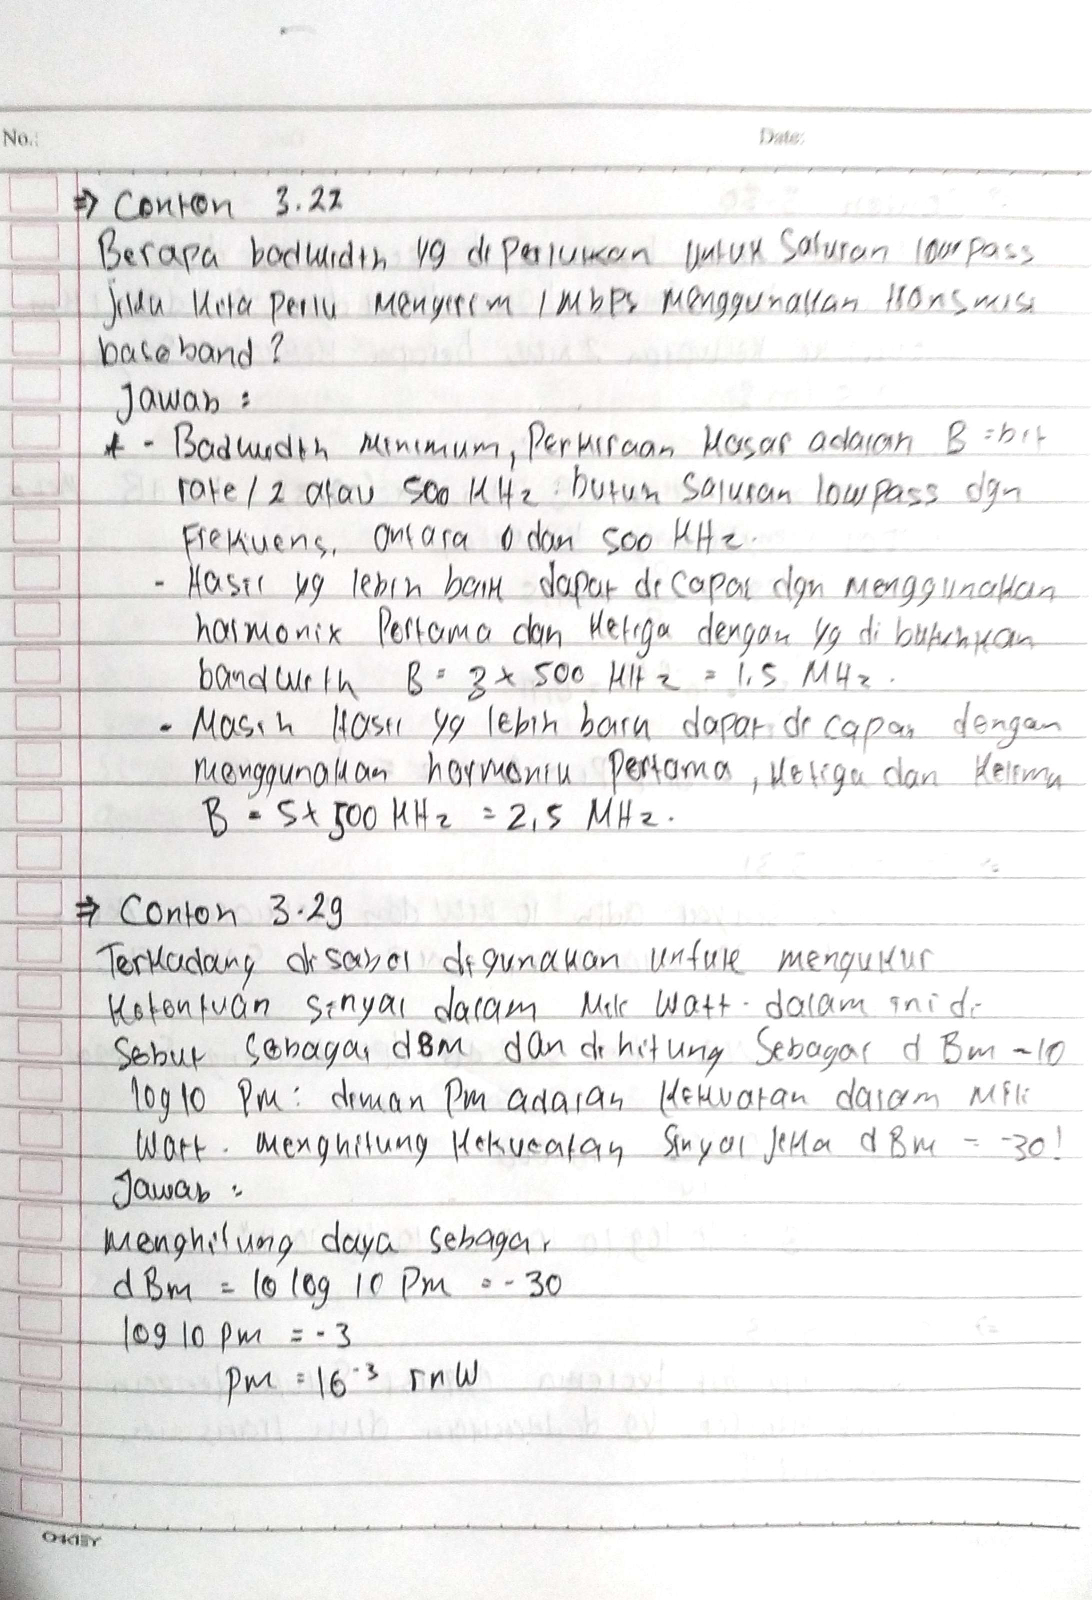 No.:
Date:
⇒ Conton 3.22
Berapa badwidth yg diperlukan untuk saluran lowpass
jika kita perlu mengirim 1 Mbps menggunakan transmisi
baseband?
Jawab :
* - Badwidth minimum, perkiraan kasar adalah B = bit
rate / 2 atau 500 KHz. butuh saluran lowpass dgn
Frekuensi antara 0 dan 500 KHz.
- Hasil yg lebih baik dapat di capai dgn menggunakan
harmonix pertama dan ketiga dengan yg di butuhkan
bandwith B = 3 x 500 KHz = 1,5 MHz.
- Masih Hasil yg lebih baik dapat di capai dengan
menggunakan harmonik pertama, ketiga dan kelima
B = 5 x 500 KHz = 2,5 MHz.
⇒ Conton 3.29
Terkadang disabel digunakan untuk mengukur
ketentuan sinyal dalam mili watt. dalam ini di
sebut sebagai dBm dan di hitung sebagai d Bm = 10
log 10 Pm : diman Pm adalah kekuatan dalam mili
watt. menghitung kekuatan sinyal jika d Bm = -30!
Jawab :
menghitung daya sebagai
d Bm = 10 log 10 Pm = -30
log 10 pm = -3
pm = 10-3 mW
OKEY